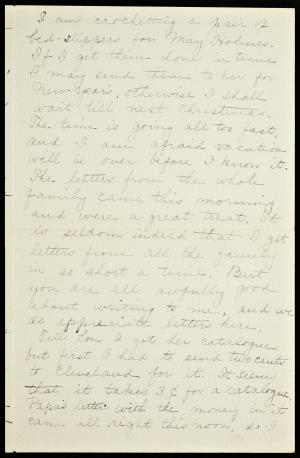 I am crocheting a pair of
bed-slippers for May Holmes.
If I get them done in time
I may send them to her for
New-Year's, otherwise I shall
wait till next Christmas.
The time is going all too fast,
and I am afraid vacation
will be over before I know it.
The letters from the whole
family came this morning
and were a great treat. It
is seldom indeed that I get
letters from all the family
in so short a time. But
you are all awfully good
about writing to me, and we
do appreciate letters here.
Tell Lou I got her catalogue
but first I had to send two cents
to Cleveland for it. It seems
that it takes 3¢ for a catalogue.
Papa's letter with the money in it
came all right this noon, so I